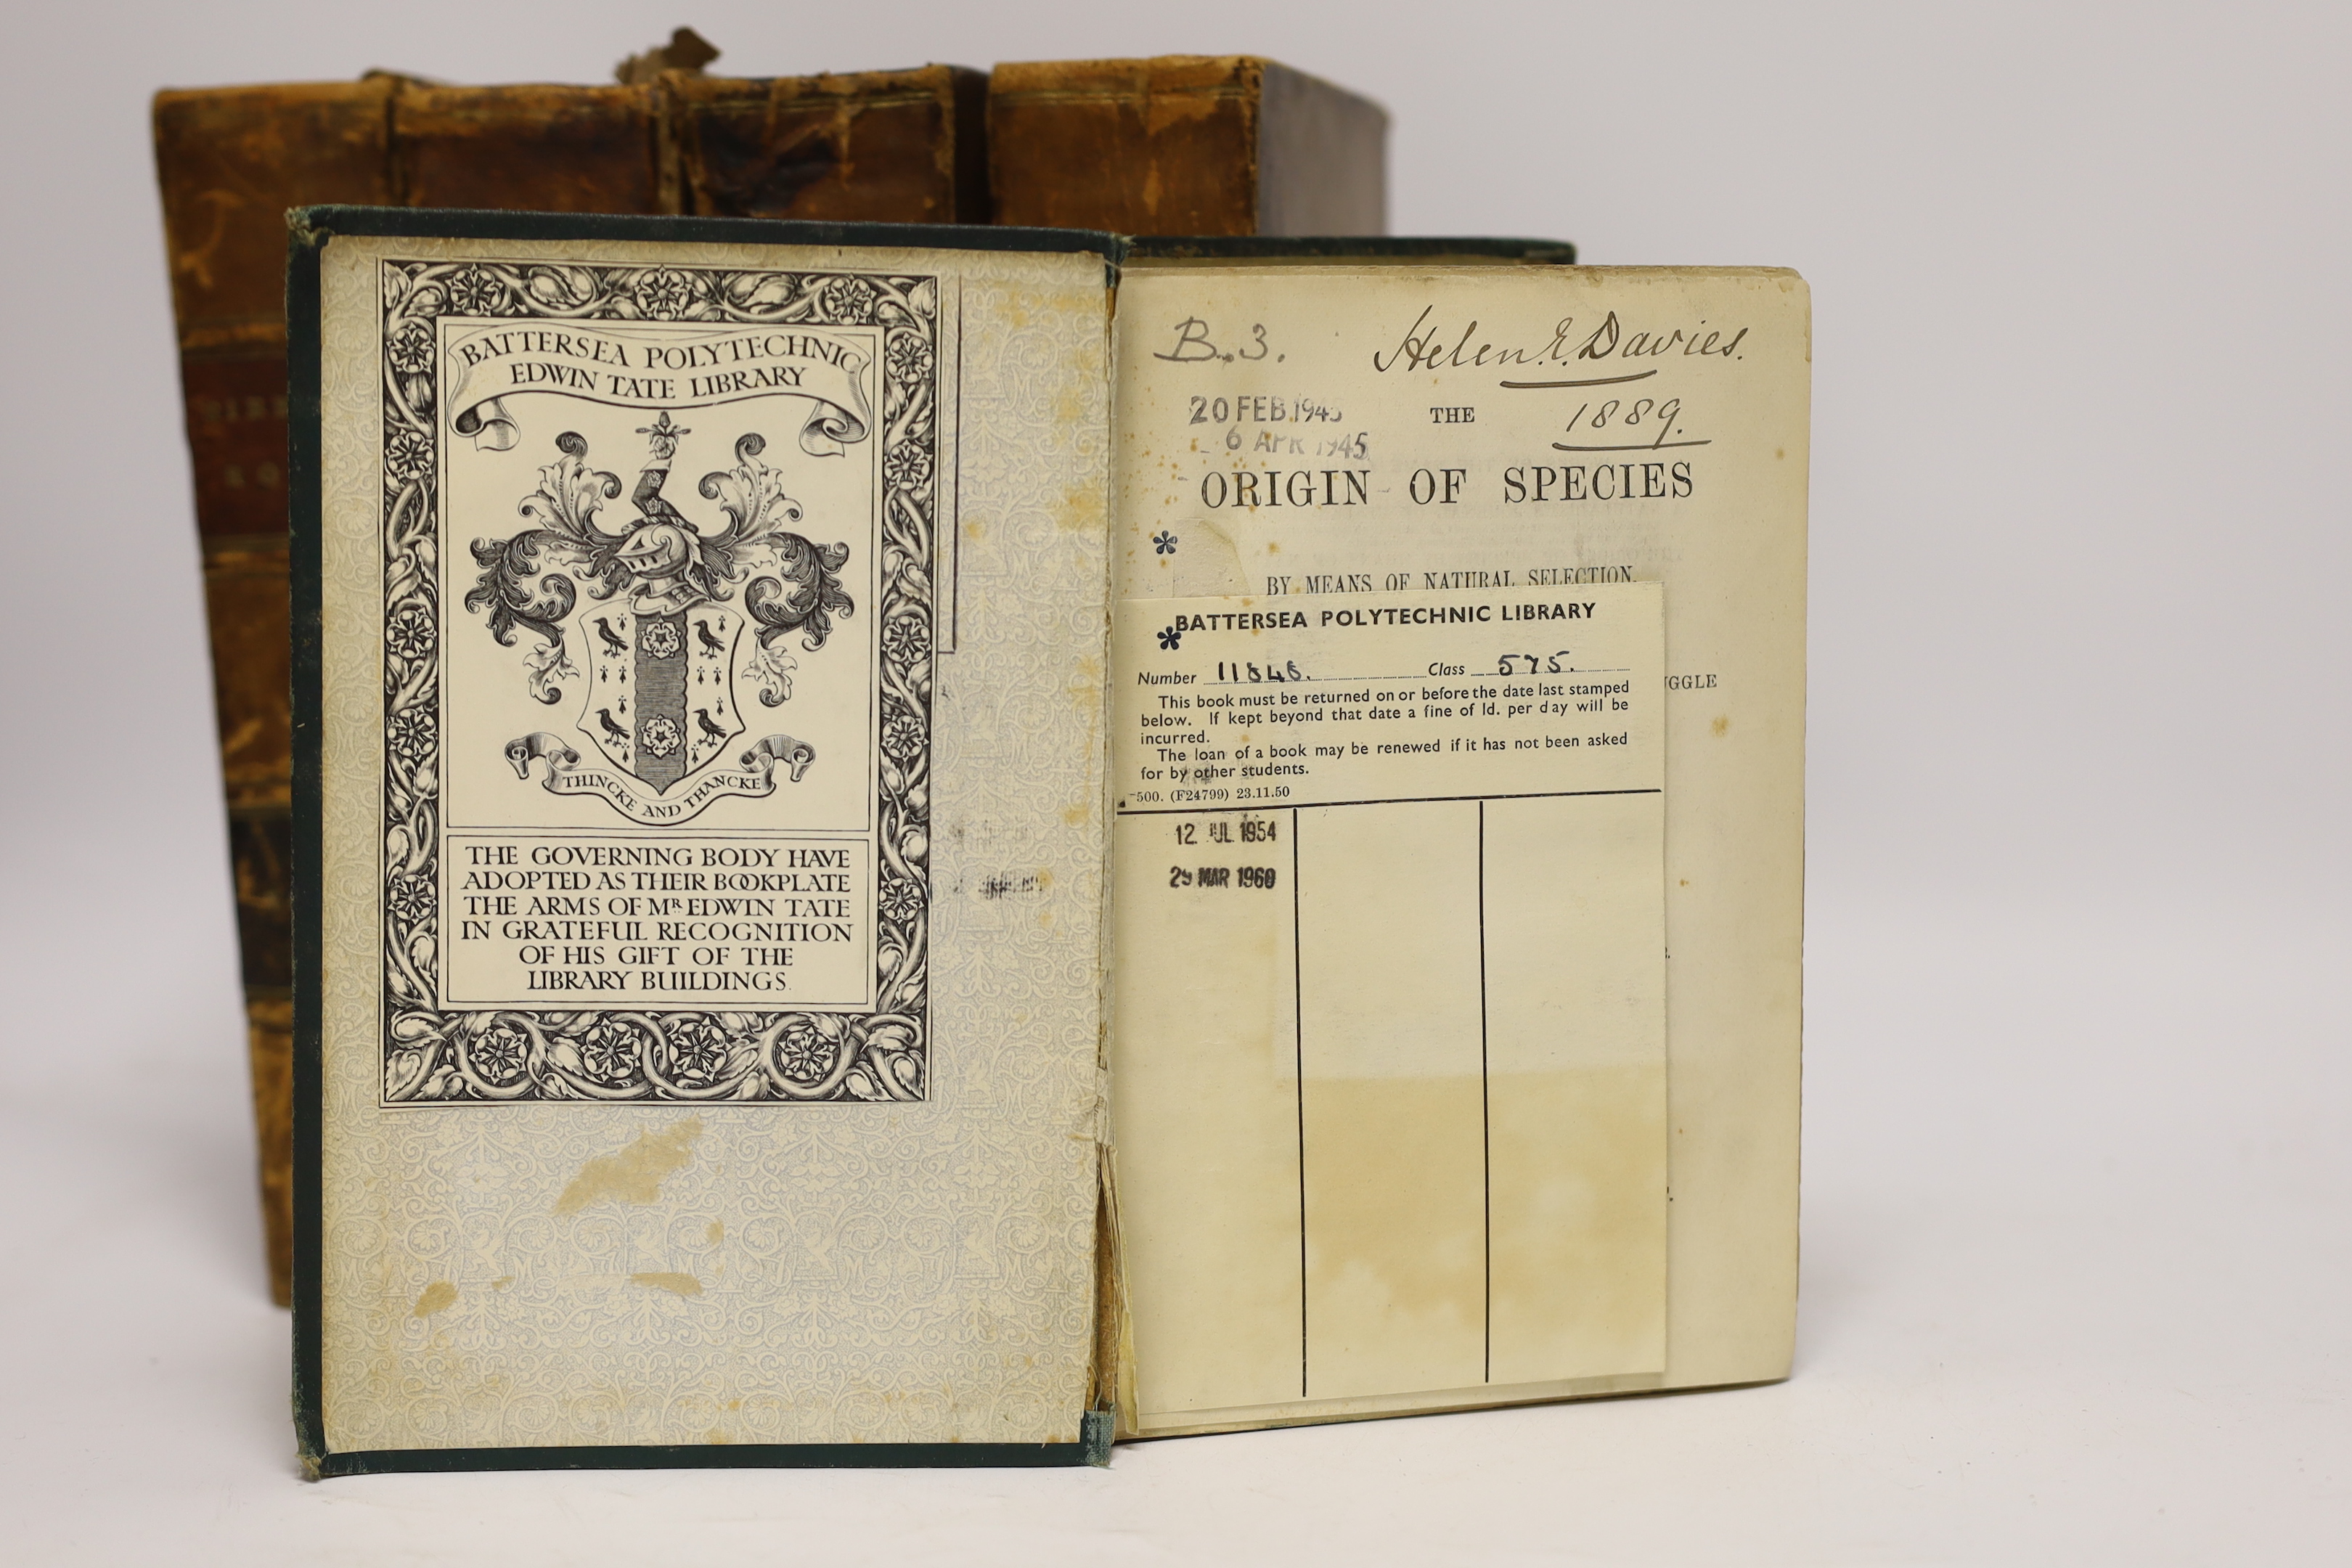 BATTERSEA POLYTECHNIC
EDWIN TATE LIBRARY
THINCKE AND THANCKE
THE GOVERNING BODY HAVE
ADOPTED AS THEIR BOOKPLATE
THE ARMS OF MR EDWIN TATE
IN GRATEFUL RECOGNITION
OF HIS GIFT OF THE
LIBRARY BUILDINGS.
B.3.
Helen E. Davies.
1889.
20 FEB 1945
6 APR 1945
THE
ORIGIN OF SPECIES
BY MEANS OF NATURAL SELECTION,
UGGLE
BATTERSEA POLYTECHNIC LIBRARY
Number 11848. Class 575.
This book must be returned on or before the date last stamped
below. If kept beyond that date a fine of 1d. per day will be
incurred.
The loan of a book may be renewed if it has not been asked
for by other students.
500. (F24799) 23.11.50
12 JUL 1954
29 MAR 1960